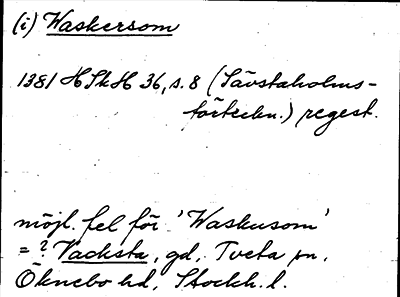 (i) Waskersom
1381 HSkH 36, s. 8 (Sävstaholms-
förteckn.) regest.
möjl. fel för 'Waskusom'
= ? Vacksta, gd, Tveta sn,
Öknebo hd, Stockh. l.